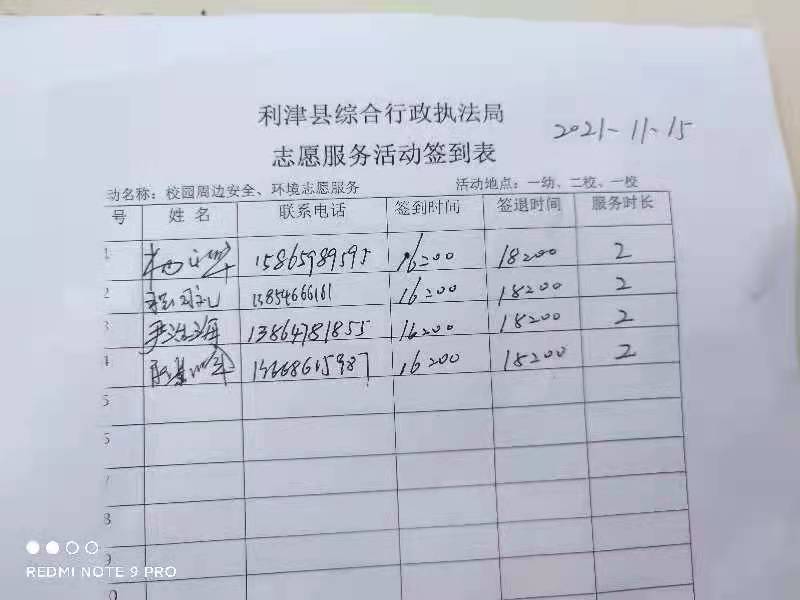 利津县综合行政执法局
2021-11-15
志愿服务活动签到表
动名称：校园周边安全、环境志愿服务 活动地点：一幼、二校、一校
号 姓 名 联系电话 签到时间 签退时间 服务时长
1 15865989595 16:00 18:00 2
2 13854666161 16:00 18:00 2
3 13864781855 16:00 18:00 2
4 16:00 18:00 2
5
6
7
8
9
REDMI NOTE 9 PRO